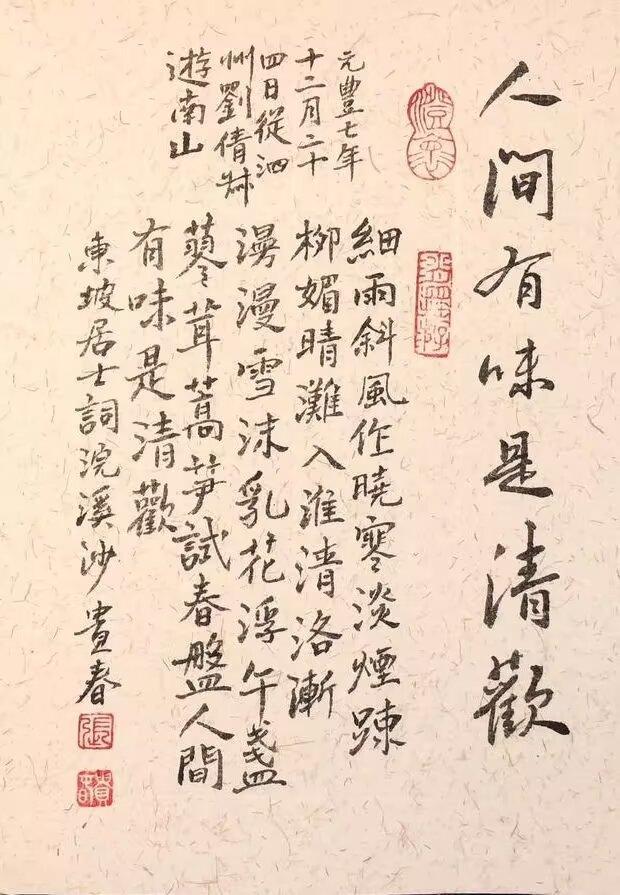 人間有味是清歡
元豐七年
十二月二十
四日從泗
州劉倩叔
遊南山
細雨斜風作曉寒淡煙踈
柳媚晴灘入淮清洛漸
漫漫雪沫乳花浮午盞
蓼茸蒿笋試春盤人間
有味是清歡
東坡居士詞浣溪沙 貴春
張